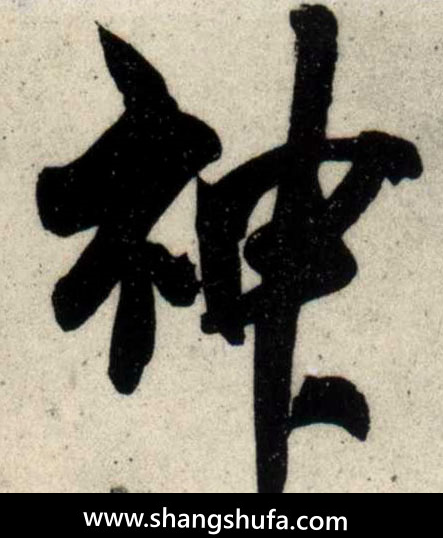 神
www.shangshufa.com